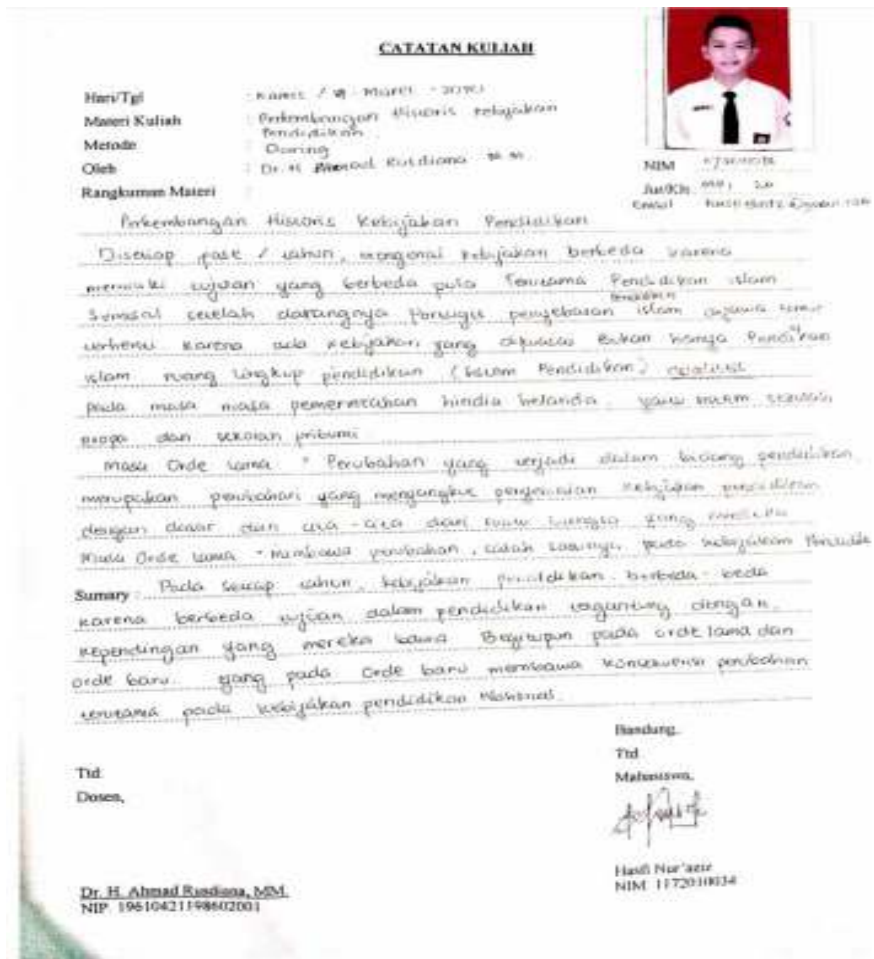 CATATAN KULIAH
Hari/Tgl : Kamis / Maret -
Materi Kuliah : Perkembangan Historis Kebijakan
Pendidikan
Metode : Daring
Oleh : Dr. H Ahmad Rusdiana M.M
NIM
Rangkuman Materi :
Jur/Kls
Email
Perkembangan Historis Kebijakan Pendidikan
Disetiap fase / tahun, mengenai kebijakan berbeda karena
memiliki tujuan yang berbeda pula Terutama Pendidikan islam
Pendidikan
setelah datangnya Portugis penyebaran islam
karena ada kebijakan yang bukan hanya Pendidikan
islam ruang lingkup pendidikan ( Pendidikan)
pada masa masa pemerintahan hindia belanda,
dan sekolah pribumi
Masa Orde lama " Perubahan yang terjadi dalam bidang pendidikan
merupakan perubahan yang menyangkut penyesuaian kebijakan pendidikan
dengan dasar dan cita-cita dari suatu bangsa yang merdeka
Masa Orde - membawa perubahan, salah satunya pada kebijakan Pendidikan
Sumary : Pada setiap tahun, kebijakan pendidikan berbeda-beda
karena berbeda tujuan dalam pendidikan tergantung dengan
kependingan yang mereka bawa Begitupun pada orde lama dan
orde baru. yang pada Orde baru membawa konsekuensi perubahan
terutama pada kebijakan pendidikan Nasional.
Bandung,
Ttd
Ttd
Mahasiswa,
Dosen,
Hasfi Nur'aziz
NIM 1172010034
Dr. H. Ahmad Rusdiana, MM.
NIP 19610421198602001